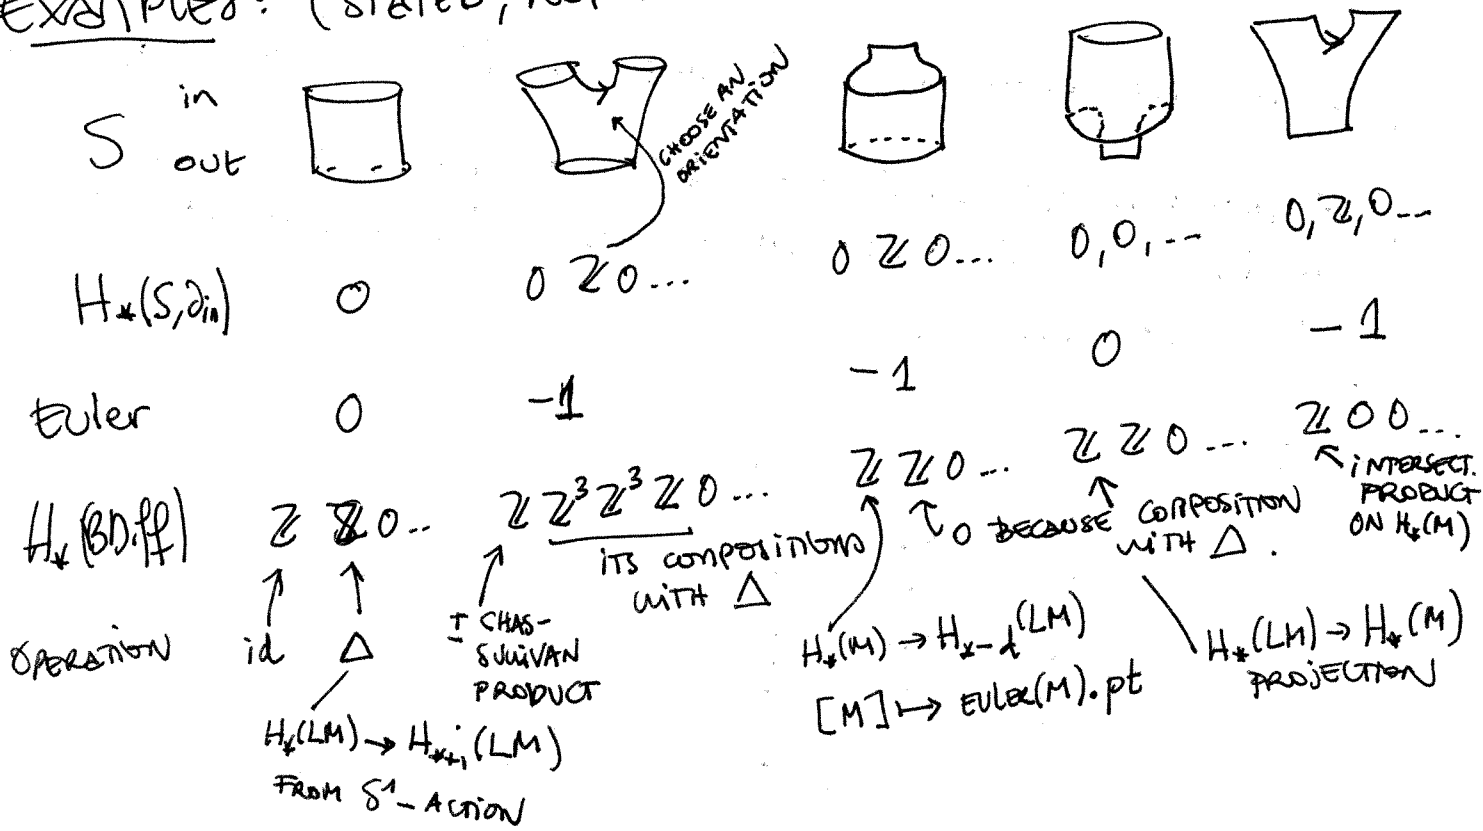 EXAMPLES: (STATED, NO
S in
out
CHOOSE AN
ORIENTATION
H_*(S,∂_in) 0 0 ℤ 0... 0 ℤ 0... 0,0,... 0,ℤ,0...
Euler 0 -1 -1 0 -1
H_*(BDiff) ℤ ℤ 0.. ℤ ℤ³ ℤ³ ℤ 0... ℤ ℤ 0... ℤ ℤ 0... ℤ 0 0...
ITS COMPOSITIONS
WITH Δ
0 BECAUSE COMPOSITION
WITH Δ.
INTERSECT.
PRODUCT
ON H_*(M)
OPERATION id Δ
± CHAS-
SULLIVAN
PRODUCT
H_*(M) → H_{*-d}(LM)
[M] ↦ EULER(M).pt
H_*(LM) → H_*(M)
PROJECTION
H_*(LM) → H_{*+1}(LM)
FROM S¹-ACTION